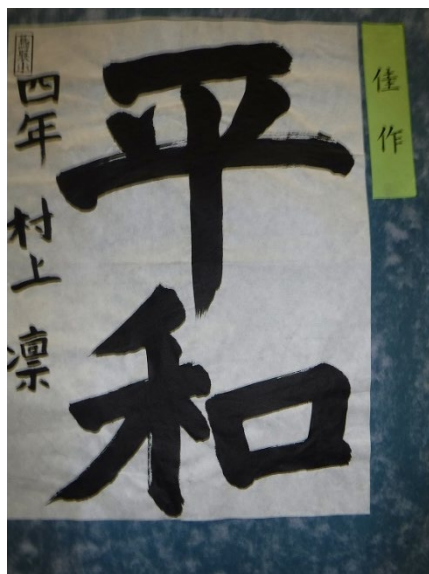 佳作
平和
四年 村上 凛